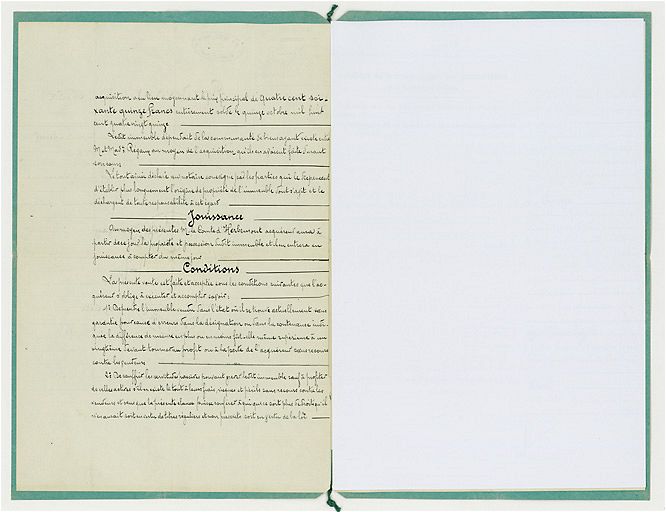 acquisition a eu lieu moyennant le prix principal de quatre cent soi-
xante quinze francs entièrement soldé le quinze octobre mil huit
cent quatre vingt quinze
Ledit immeuble dépendait de la communauté de biens ayant existé entre
M. et Mad. au moyen de l'acquisition qu'ils en avaient faite durant
son cours
Le tout ainsi déclaré au notaire soussigné par les parties qui le dispensent
d'établir plus longuement l'origine de propriété de l'immeuble dont s'agit et le
déchargent de toute responsabilité à cet égard
Jouissance
Au moyen des présentes M. le Comte d'Herbemont acquéreur aura à
partir de ce jour la propriété et possession dudit immeuble et il en entrera en
jouissance à compter du même jour
Conditions
La présente vente est faite et acceptée sous les conditions suivantes que l'ac-
quéreur s'oblige à exécuter et accomplir savoir :
1° De prendre l'immeuble vendu dans l'état où il se trouve actuellement sans
garantie pour cause d'erreurs dans la désignation ou dans la contenance indi-
quée la différence de mesure en plus ou en moins fût-elle même supérieure à un
vingtième devant tourner au profit ou à la perte de l'acquéreur sans recours
contre les vendeurs
2° De souffrir les servitudes passives pouvant grever ledit immeuble sauf à profiter
de celles actives s'il en existe le tout à leurs frais, risques et périls sans recours contre les
vendeurs et sans que la présente clause puisse conférer à quiconque soit plus de droits qu'il
n'en aurait soit en vertu de titres réguliers et non prescrits soit en vertu de la loi